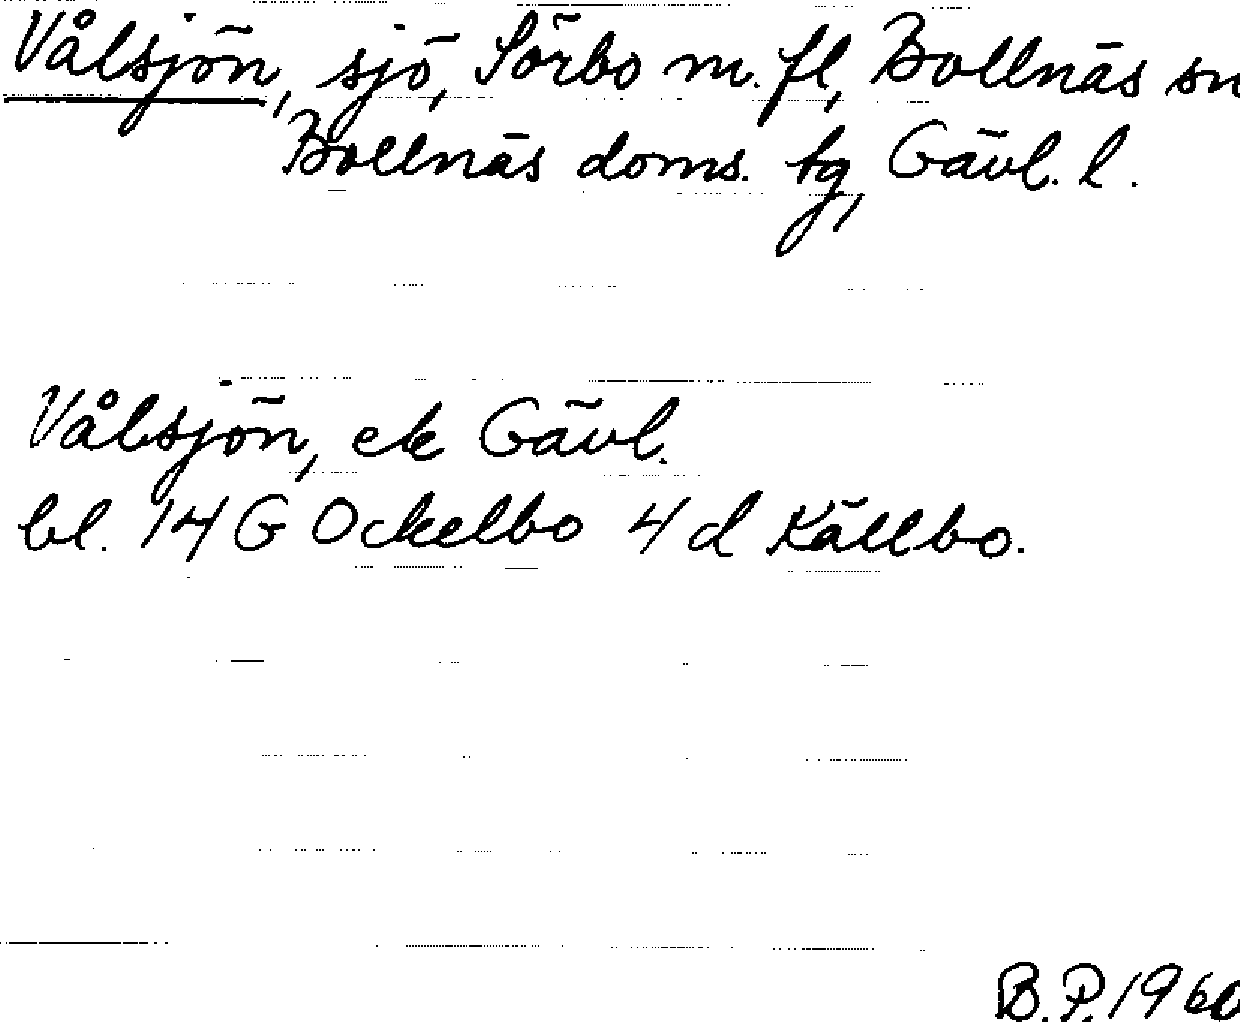 Vålsjön, sjö, Sörbo m. fl, Bollnäs sn
Bollnäs doms. tg, Gävl. l.
Vålsjön, ek Gävl.
bl. 14 G Ockelbo 4 d Källbo.
B.P. 1960